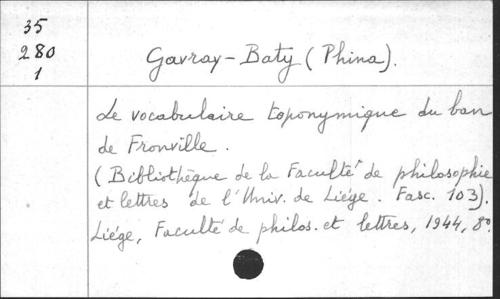 35
280
1
Gavray-Baty (Phina).
Le vocabulaire toponymique du ban
de Fronville.
(Bibliothèque de la Faculté de philosophie
et lettres de l'Univ. de Liége. Fasc. 103).
Liége, Faculté de philos. et lettres, 1944, 8º.